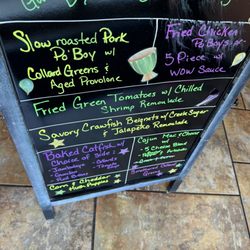 Slow roasted Pork
Po' Boy w/
Collard Greens &
Aged Provolone
Fried Chicken
Po' Boy
5 Piece w/
WOW Sauce
Fried Green Tomatoes w/ Chilled
Shrimp Remoulade
Savory Crawfish Beignets w/ Creole Sugar
& Jalapeño Remoulade
Baked Catfish w/
Choice of Side:
Jambalaya
Collards
Corn & Cheddar
Hush Puppies
Cajun Mac & Cheese
w/
5 Cheese Blend